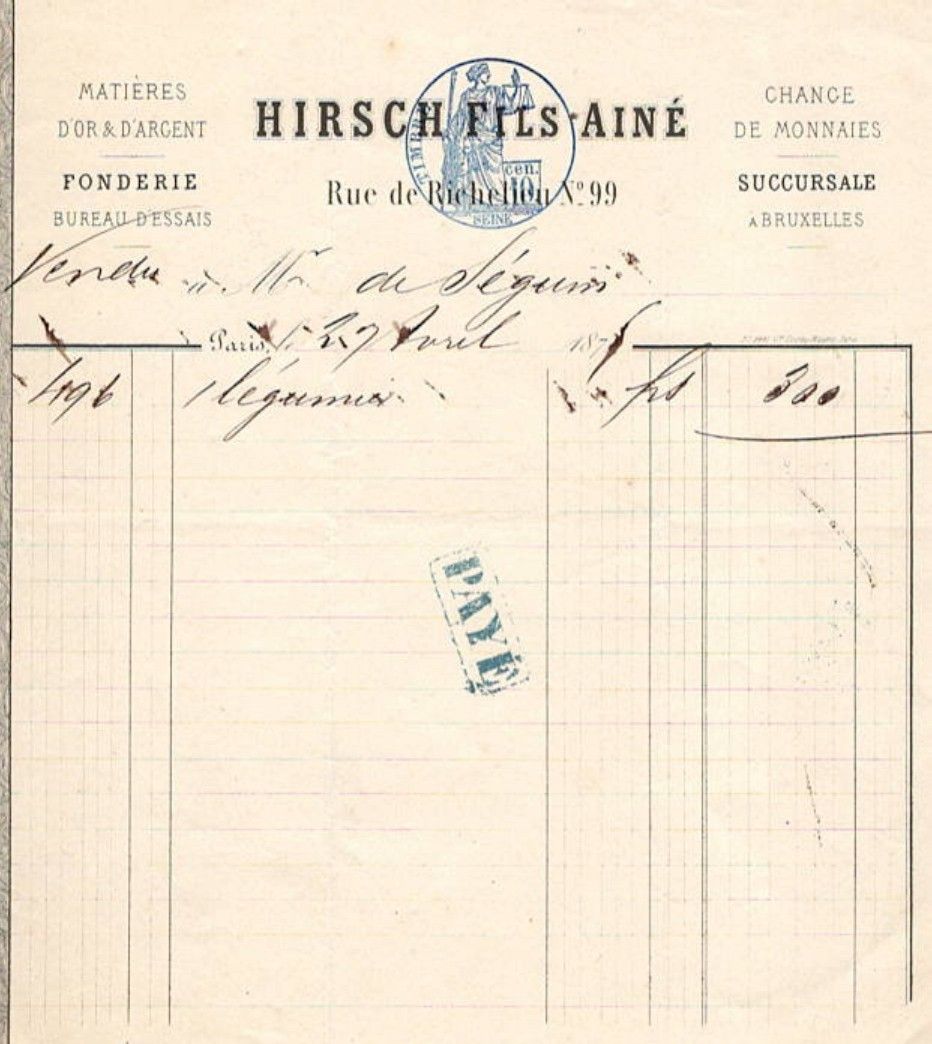 MATIÈRES
D'OR & D'ARGENT
FONDERIE
BUREAU D'ESSAIS
HIRSCH FILS AINÉ
Rue de Richelieu Nº 99
TIMBRE
10 cen.
SEINE
CHANGE
DE MONNAIES
SUCCURSALE
A BRUXELLES
Vendu à Mr de Séguin
Paris, 27 Avril 187
496 1 légumier fcs 300
PAYÉ